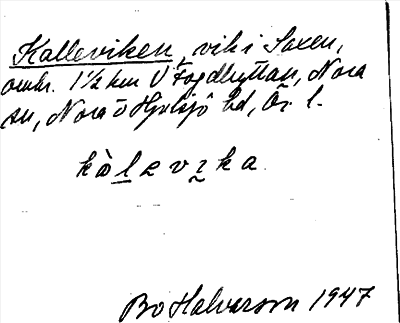 Kalleviken, vik i Saxen,
omkr. 1½ km V Fogdhyttan, Nora
sn, Nora o Hjulsjö bd, Ör. l.
Bo Halvarson 1947